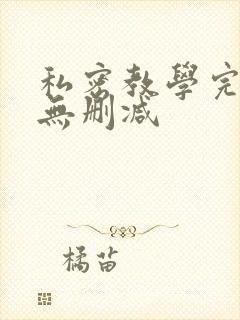 私密教學完
無刪減
橘苗